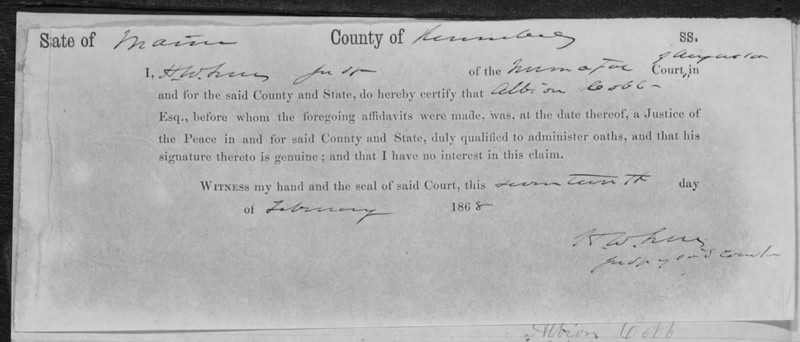 State of Maine County of Kennebec ss.
I, H. W. True Judge of the Municipal Court, in
of Augusta
and for the said County and State, do hereby certify that Albion Cobb
Esq., before whom the foregoing affidavits were made, was, at the date thereof, a Justice of
the Peace in and for said County and State, duly qualified to administer oaths, and that his
signature thereto is genuine; and that I have no interest in this claim.
WITNESS my hand and the seal of said Court, this seventeenth day
of February 1868
H. W. True
Judge of said Court
Albion Cobb